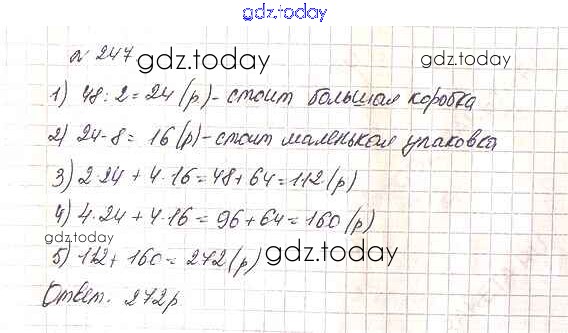 gdz.today
№ 247
gdz.today
gdz.today
1) 48 : 2 = 24 (р) - стоит большая коробка
2) 24 - 8 = 16 (р) - стоит маленькая упаковка
3) 2·24 + 4·16 = 48 + 64 = 112 (р)
4) 4·24 + 4·16 = 96 + 64 = 160 (р)
gdz.today
5) 112 + 160 = 272 (р)
gdz.today
Ответ. 272р